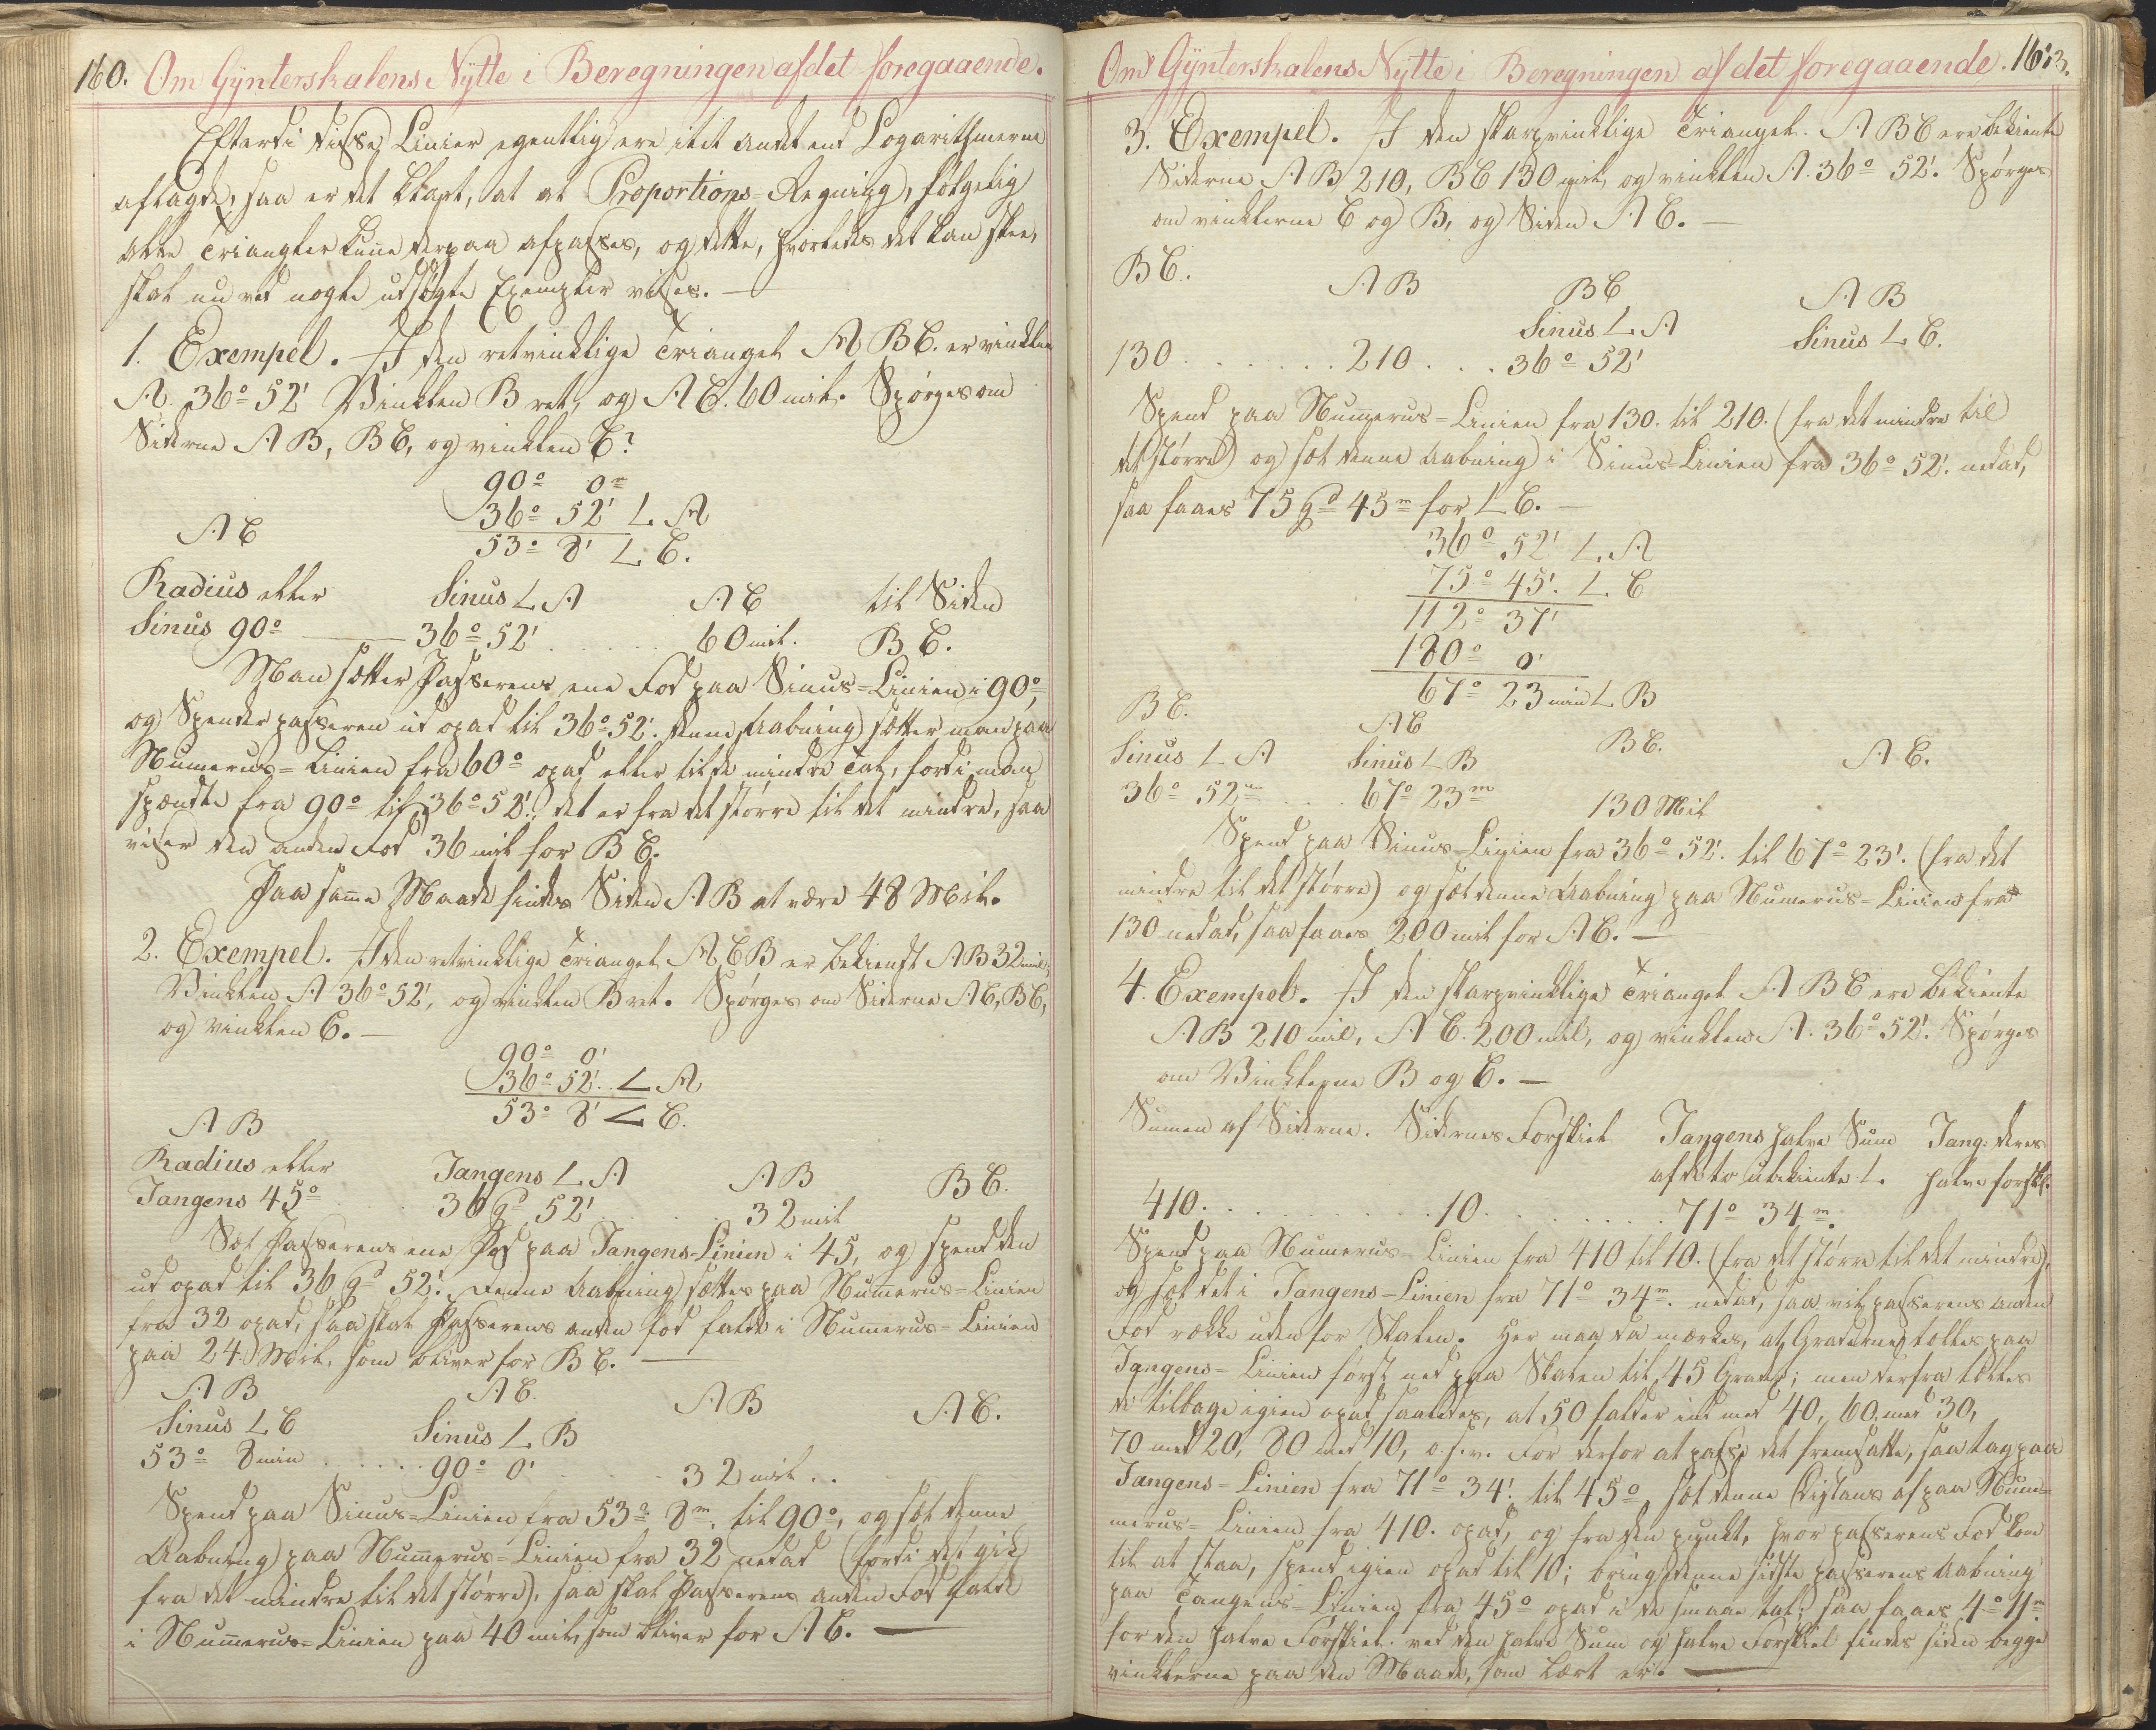 160. Om Gÿnterskalens Nÿtte i Beregningen af det foregaaende.
Efterdi disse Linier egentlig ere ikke andet end Logarithmerne
aflagde, saa er det klart, at al Proportions-Regning, følgelig
alle Triangler kunne derpaa afpasses, og dette, hvorledes det kan skee,
skal nu ved nogle udsøgte Exempler vises. —
1. Exempel. I den retvinklige Triangel A B C. er vinklen
A. 36° 52' Vinklen B ret, og A C. 60 mil. Spørges om
Siderne A B, B C, og vinklen C?
90° 0m
36° 52' L. A
53° 8' L. C.
A C
Radius eller Sinus L A A C til Siden
Sinus 90° — 36° 52' . . . . . 60 mil. B C.
Man sætter Passerens ene Fod paa Sinus-Linien i 90°,
og Spender passeren ud opad til 36° 52'. denne Aabning sætter man paa
Numerus-Linien fra 60° opad eller til de mindre Tal, fordi man
spændte fra 90° til 36° 52'. det er fra det større til det mindre, saa
viser den anden Fod 36 mil for B C.
Paa samme Maade findes Siden A B at være 48 Mil.
2. Exempel. I den retvinklige Triangel A C B er bekiendt A B 32 mil;
Vinklen A 36° 52', og vinklen B ret. Spørges om Siderne A C, B C,
og vinklen C. —
90° 0'
36° 52'. L A
53° 8' L C.
A B
Radius eller Tangens L A A B B C.
Tangens 45° . . . 36 gd 52' . . . . 32 mil
Sæt Passerens ene Fod paa Tangens-Linien i 45, og spend den
ud opad til 36 gd 52'. denne Aabning sættes paa Nummerus-Linien
fra 32 opad, saa skal Passerens anden fod falde i Nummerus-Linien
paa 24. Mil, som bliver for B C. —
A B A C. A B A C.
Sinus L C Sinus L B
53° 8 min . . . . . 90° 0' . . . . 32 mil . .
Spend paa Sinus-Linien fra 53° 8m. til 90°, og sæt denne
Aabning paa Nummerus-Linien fra 32 nedad (fordi det gik
fra det mindre til det større), saa skal Passerens anden Fod falde
i Nummerus-Linien paa 40 mil, som bliver for A C. —
Om Gÿnterskalens Nÿtte i Beregningen af det foregaaende. 161.
3. Exempel. I den skarpvinklige Triangel. A B C ere bekiente
Siderne A B 210, B C 130 mil, og vinklen A. 36° 52'. Spørges
om vinklerne C og B, og Siden A C. —
B C. A B B C A B
Sinus L A Sinus L C.
130 . . . . . . 210 . . . 36° 52'
Spend paa Nummerus-Linien fra 130. til 210. (fra det mindre til
det større) og sæt denne Aabning i Sinus-Linien fra 36° 52'. nedad,
saa faaes 75 gd 45m for L C. —
36° 52' L. A
75° 45'. L. C
112° 37'
180° 0'
67° 23 min L B
B C. A C B C. A C.
Sinus L A Sinus L B
36° 52m . . . 67° 23m 130 Mil
Spend paa Sinus-Linien fra 36° 52'. til 67° 23'. (fra det
mindre til det større) og sæt denne Aabning paa Numerus-Linien fra
130 nedad, saa faaes 200 mil for A C. —
4. Exempel. I den skarpvinklige Triangel A B C ere bekiente
A B 210 mil, A C. 200 mil, og vinklen A. 36° 52'. Spørges
om Vinklerne B og C. —
Sumen af Siderne. Sidernes Forskiel Tangens halve Sum Tang: deres
af de to ubekiente L. halve forskl.
410. . . . . . . . . . 10. . . . . . . . 71° 34m.
Spend paa Numerus-Linien fra 410 til 10. (fra det større til det mindre),
og sæt det i Tangens-Linien fra 71° 34m. nedad, saa vil passerens anden
Fod række uden for Skalen. Her maa da mærkes, at Graderne tælles paa
Tangens-Linien først ned paa Skalen til 45 Grader; men derfra tælles
de tilbage igien opad saaledes, at 50 falder ind med 40, 60 med 30,
70 med 20, 80 med 10, o.s.v. For derfor at passe det fremsatte, saa tag paa
Tangens-Linien fra 71° 34'. til 45°, sæt denne Distans af paa Num-
merus-Linien fra 410. opad, og fra den punkt, hvor passerens Fod kom
til at staa, spend igien opad til 10; bring denne sidste passerens Aabning
paa Tangens-Linien fra 45° opad i de smaae tal; saa faaes 4° 11m
for den halve Forskiel. ved den halve Sum og halve Forskiel findes siden begge
vinklerne paa den Maade, som lært er. —